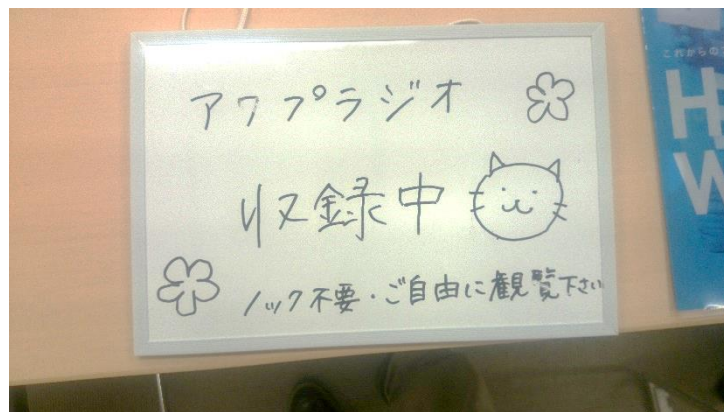 アワプラジオ
収録中
ノック不要・ご自由に観覧下さい
これからの
H
W